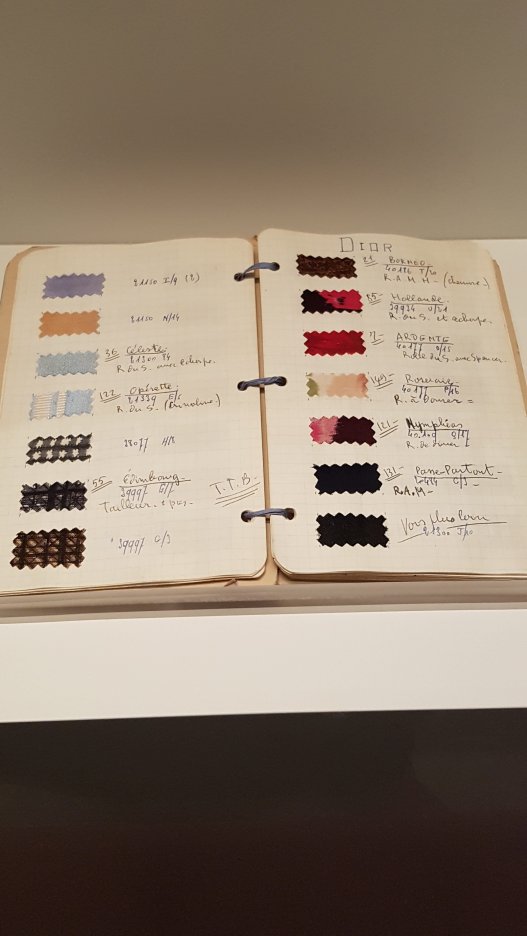 81150 I/9 (2)
81150 N/14
36 Céleste
81300 T4
R. du S. avec echarpe.
122 Opérette
81339 E/2
R. du S. (Crinoline)
38077 H/3
55 Edimbourg
39997 E/7
Tailleur
T.T.B.
39997 C/3
DIOR
21 BORNEO
40186 T/40
R.A.M.H.
85 Hollande
39934 U/21
R. du S. et echarpe.
7 ARDENTE
40177 O/15
Robe du S. avec Spencer.
149 Roseraie
40177 P/16
R. à Danser
121 Nymphéas
40109 Q/17
R. de Diner
131 Passe-Partout
C/3
R.A.M
Voir plus loin
81300 T/10